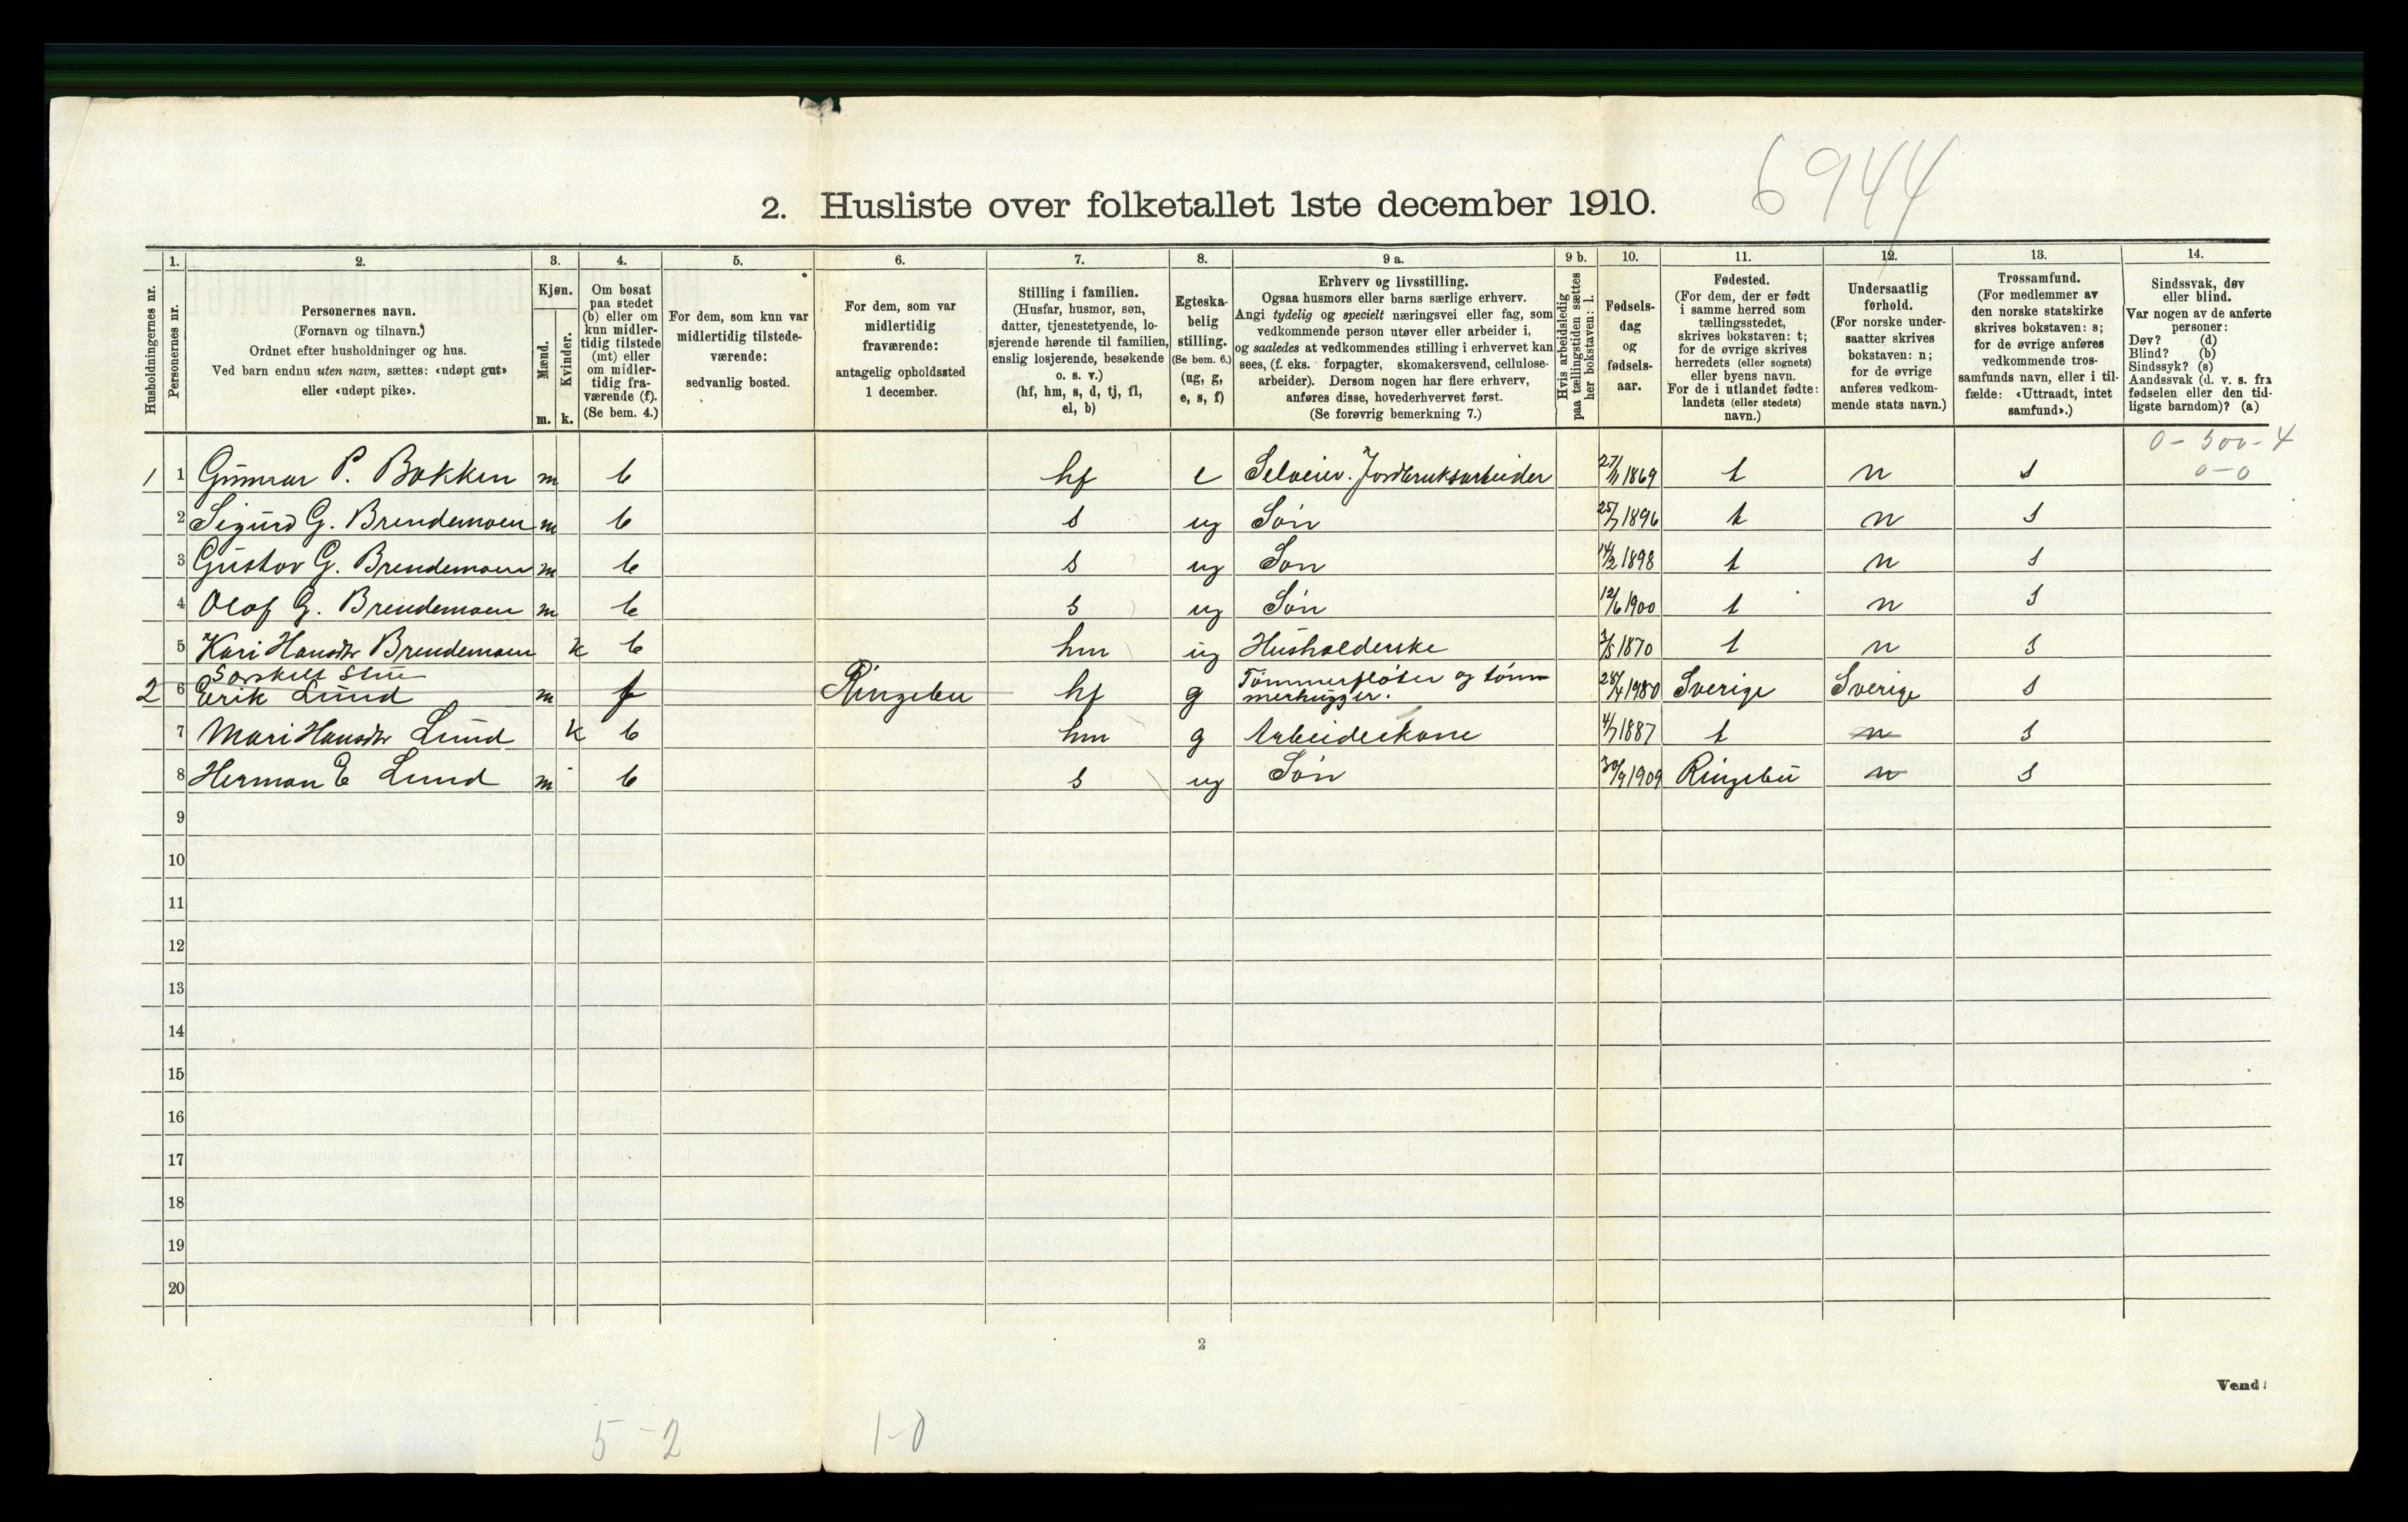 6944
2. Husliste over folketallet 1ste december 1910.
Husholdningernes nr.
1.
Personernes nr.
2.
Personernes navn.
(Fornavn og tilnavn.)
Ordnet efter husholdninger og hus.
Ved barn endnu uten navn, sættes: «udøpt gut»
eller «udøpt pike».
3.
Kjøn.
Mænd.
Kvinder.
m. k.
4.
Om bosat
paa stedet
(b) eller om
kun midler-
tidig tilstede
(mt) eller
om midler-
tidig fra-
værende (f).
(Se bem. 4.)
5.
For dem, som kun var
midlertidig tilstede-
værende:
sedvanlig bosted.
6.
For dem, som var
midlertidig
fraværende:
antagelig opholdssted
1 december.
7.
Stilling i familien.
(Husfar, husmor, søn,
datter, tjenestetyende, lo-
sjerende hørende til familien,
enslig losjerende, besøkende
o. s. v.)
(hf, hm, s, d, tj, fl,
el, b)
8.
Egteska-
belig
stilling.
(Se bem. 6.)
(ug, g,
e, s, f)
9 a.
Erhverv og livsstilling.
Ogsaa husmors eller barns særlige erhverv.
Angi tydelig og specielt næringsvei eller fag, som
vedkommende person utøver eller arbeider i,
og saaledes at vedkommendes stilling i erhvervet kan
sees, (f. eks. forpagter, skomakersvend, cellulose-
arbeider). Dersom nogen har flere erhverv,
anføres disse, hovederhvervet først.
(Se forøvrig bemerkning 7.)
9 b.
Hvis arbeidsledig
paa tællingstiden sættes
her bokstaven: l.
10.
Fødsels-
dag
og
fødsels-
aar.
11.
Fødested.
(For dem, der er født
i samme herred som
tællingsstedet,
skrives bokstaven: t;
for de øvrige skrives
herredets (eller sognets)
eller byens navn.
For de i utlandet fødte:
landets (eller stedets)
navn.)
12.
Undersaatlig
forhold.
(For norske under-
saatter skrives
bokstaven: n;
for de øvrige
anføres vedkom-
mende stats navn.)
13.
Trossamfund.
(For medlemmer av
den norske statskirke
skrives bokstaven: s;
for de øvrige anføres
vedkommende tros-
samfunds navn, eller i til-
fælde: «Uttraadt, intet
samfund».)
14.
Sindssvak, døv
eller blind.
Var nogen av de anførte
personer:
Døv? (d)
Blind? (b)
Sindssyk? (s)
Aandssvak (d. v. s. fra
fødselen eller den tid-
ligste barndom)? (a)
0-500-4
0-0
1 1 Gunnar P. Bakken m b hf e Selveier. Jordbruksarbeider 1869 t n s
2 Sigurd G. Brendemoen m b s ug Søn 25/7 1896 t n s
3 Gustov G. Brendemoen m b s ug Søn 14/2 1898 t n s
4 Olaf G. Brendemoen m b s ug Søn 12/6 1900 t n s
5 Kari Hansdtr Brendemoen k b hm ug Husholderske 3/8 1870 t n s
Særskilt stue
2 6 Erik Lund m f Ringebu hf g Tømmerfløter og tøm-
merhugger. 28/4 1980 Sverige Sverige s
7 Mari Hansdtr Lund k b hm g Arbeiderkone 4/7 1887 t n s
8 Herman E Lund m b s ug Søn 30/9 1909 Ringebu n s
9
10
11
12
13
14
15
16
17
18
19
20
2
Vend!
5-2 1-0